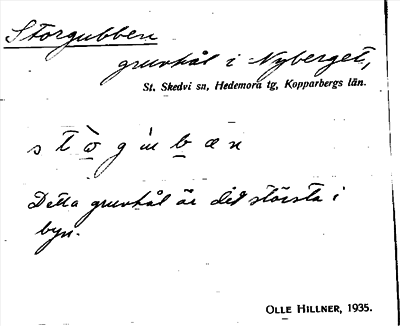 Storgubben
gruvhål i Nyberget,
St. Skedvi sn, Hedemora tg, Kopparbergs län.
Detta gruvhål är det största i
byn.
OLLE HILLNER, 1935.